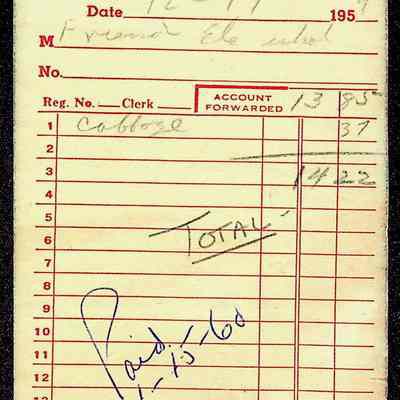 Date 12-19 1959
M Friend
No.
Reg. No. Clerk ACCOUNT FORWARDED 13 85
1 Cabbage 37
2
3 14 22
4
5 TOTAL-
6
7
8
9
10 Paid.
11 1-15-60
12